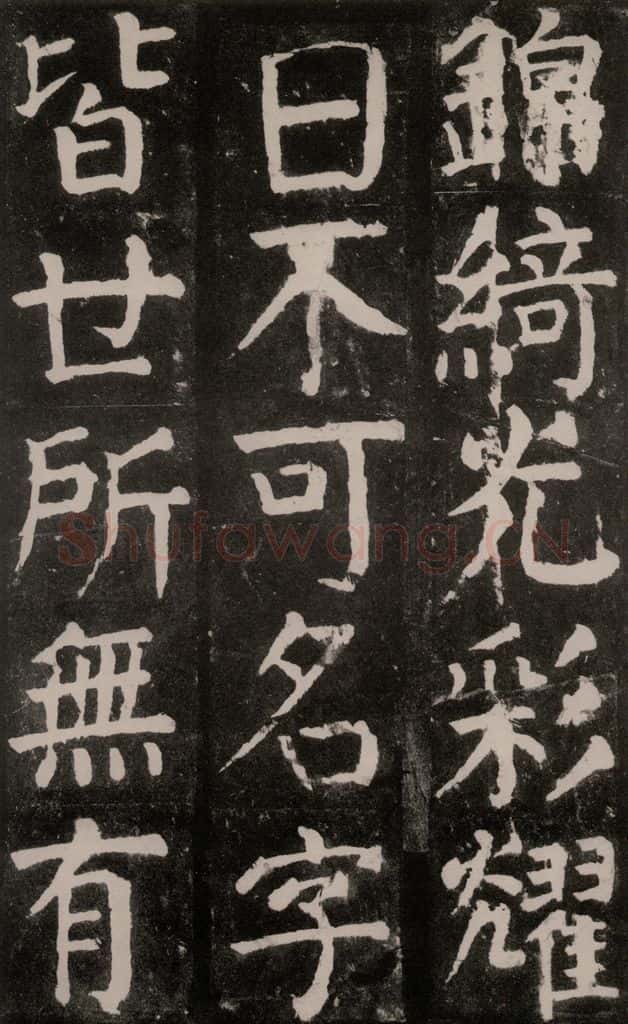 錦綺光彩耀
日不可名字
皆世所無有
Shufawang.CN